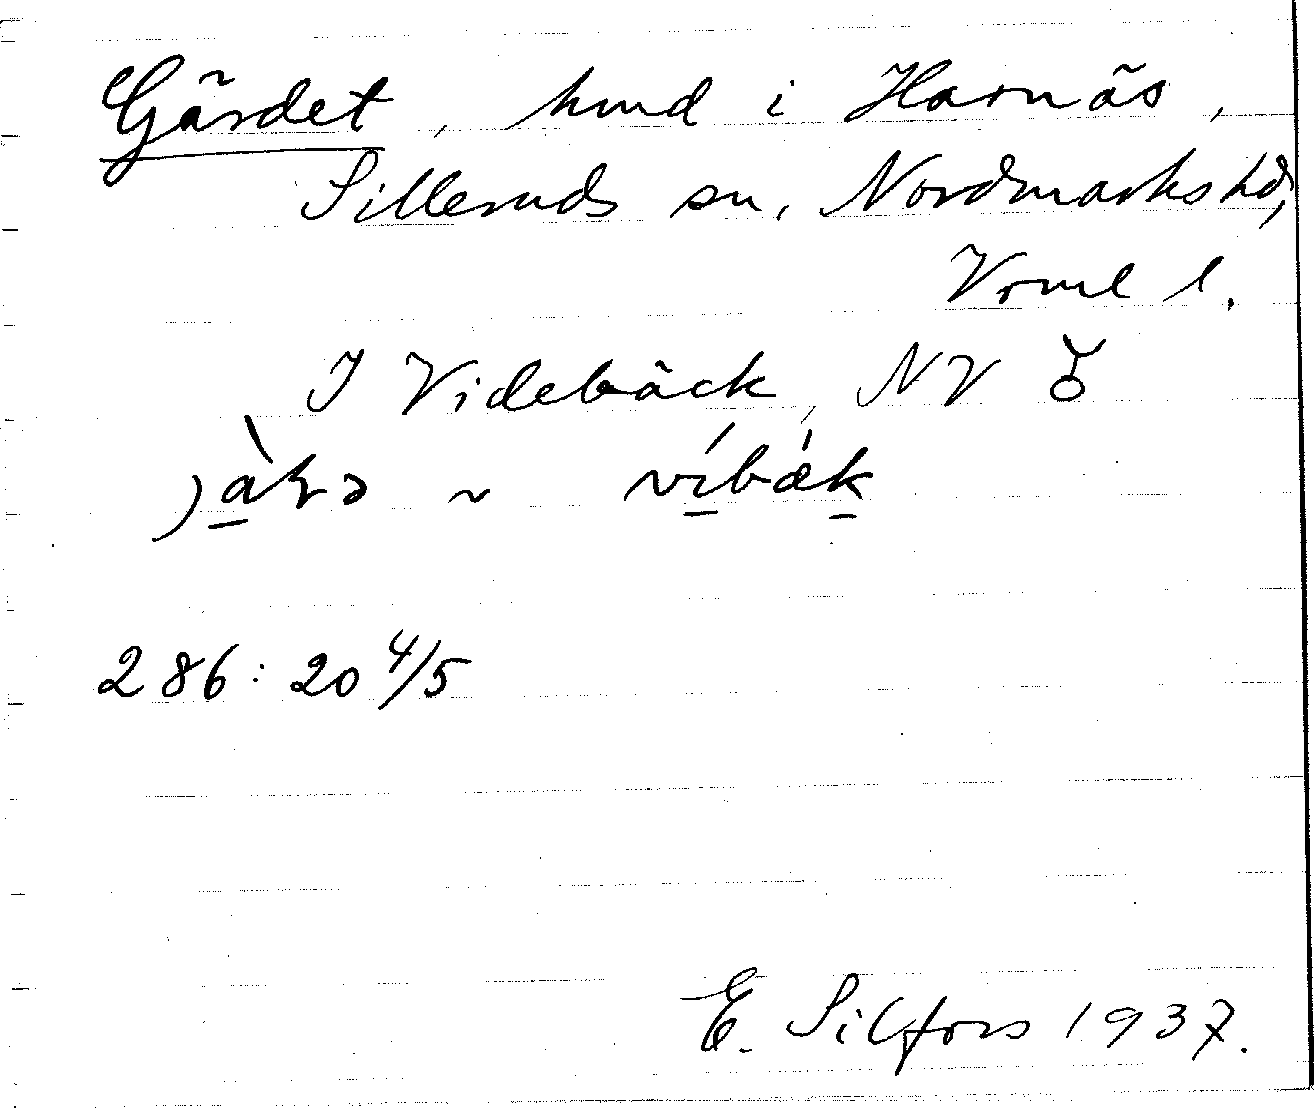 Gärdet, hmd i Harnäs,
Silleruds sn, Nordmarks hd,
Vrml l.
I Videbäck, NV ♉
~ víbæk
286:20 4/5
E. Silfors 1937.